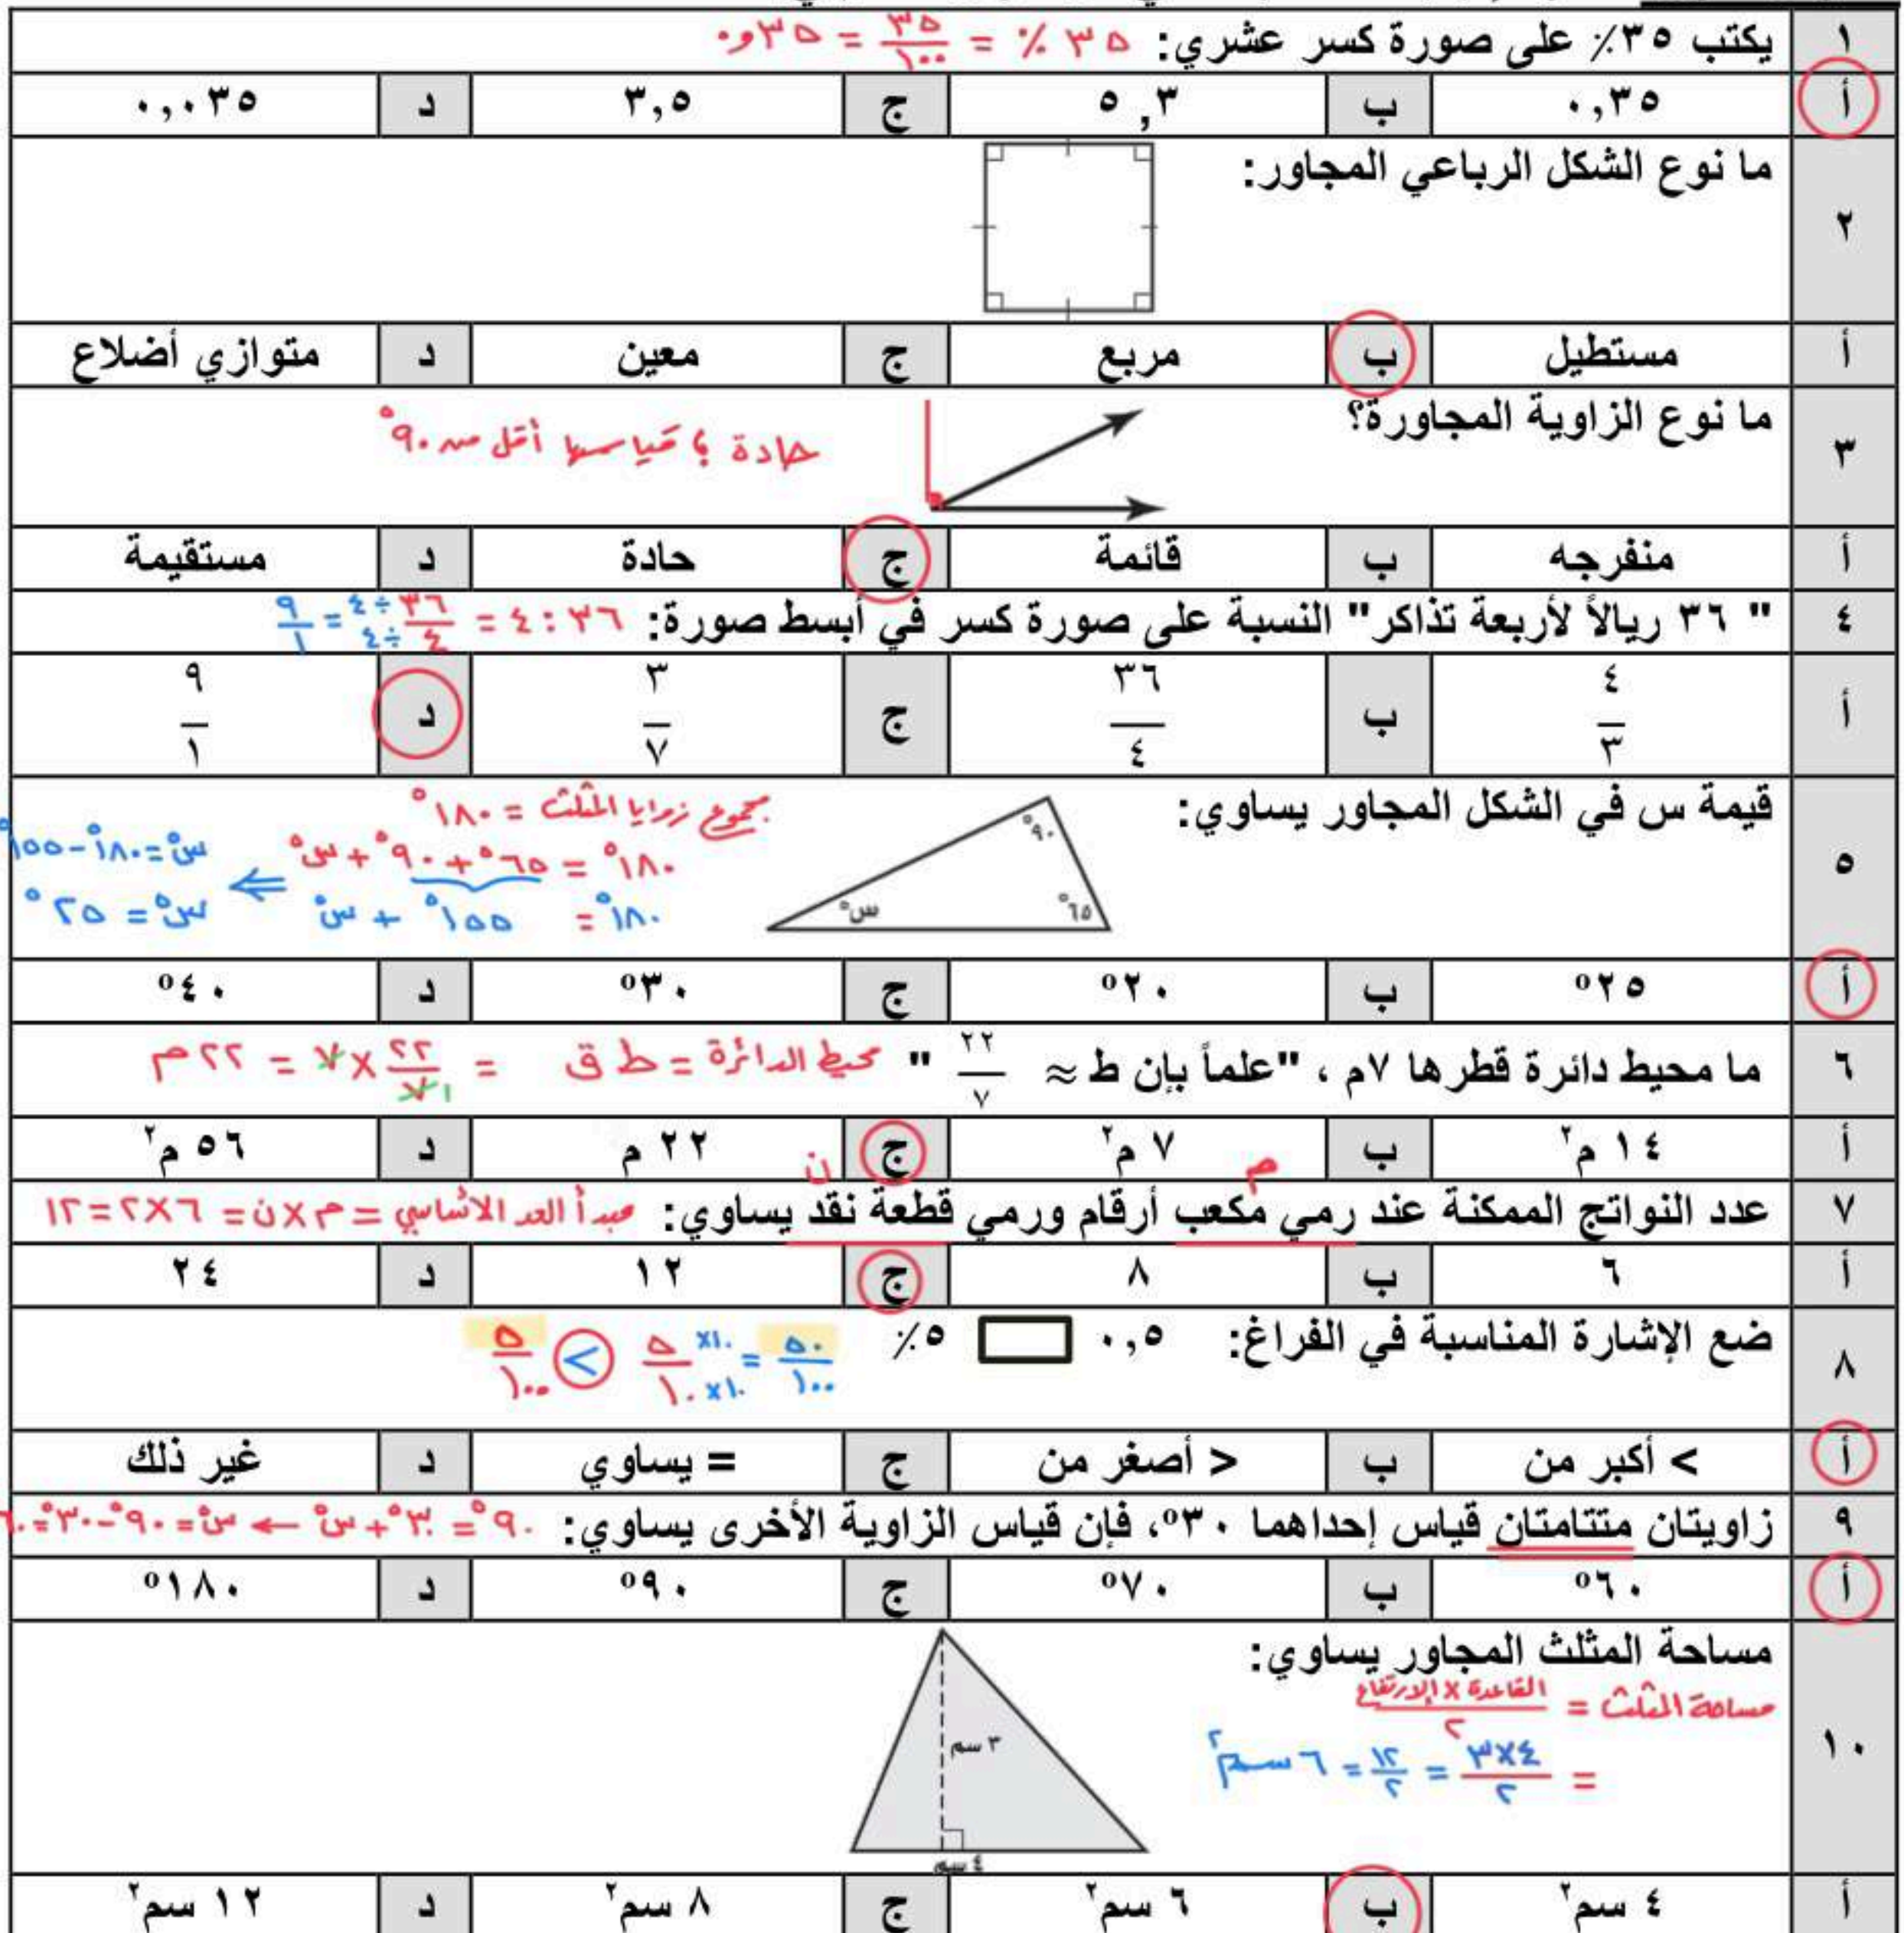 ١ يكتب ٣٥٪ على صورة كسر عشري: ٣٥ ٪ = ٣٥/١٠٠ = ٠,٣٥
أ ٠,٣٥ ب ٥,٣ ج ٣,٥ د ٠,٠٣٥
٢ ما نوع الشكل الرباعي المجاور:
أ مستطيل ب مربع ج معين د متوازي أضلاع
٣ ما نوع الزاوية المجاورة؟
حادة ؛ قياسها أقل من ٩٠°
أ منفرجه ب قائمة ج حادة د مستقيمة
٤ " ٣٦ ريالاً لأربعة تذاكر" النسبة على صورة كسر في أبسط صورة: ٣٦ : ٤ = ٣٦/٤ ÷٤/÷٤ = ٩/١
أ ٤/٣ ب ٣٦/٤ ج ٣/٧ د ٩/١
٥ قيمة س في الشكل المجاور يساوي:
٩٠° ٦٥° س°
مجموع زوايا المثلث = ١٨٠°
١٨٠° = ٦٥° + ٩٠° + س°
١٨٠° = ١٥٥° + س°
⇐ س° = ١٨٠° - ١٥٥°
س° = ٢٥°
أ ٢٥° ب ٢٠° ج ٣٠° د ٤٠°
٦ ما محيط دائرة قطرها ٧م ، "علماً بإن ط ≈ ٢٢/٧ " محيط الدائرة = ط ق = ٢٢/٧ × ٧ = ٢٢ م
أ ١٤ م٢ ب ٧ م٢ ج ٢٢ م د ٥٦ م٢
م ن
٧ عدد النواتج الممكنة عند رمي مكعب أرقام ورمي قطعة نقد يساوي: مبدأ العد الأساسي = م × ن = ٦ × ٢ = ١٢
أ ٦ ب ٨ ج ١٢ د ٢٤
٨ ضع الإشارة المناسبة في الفراغ: ٠,٥ ٥٪
٥٠/١٠٠ = ٥/١٠ ×١٠/×١٠ > ٥/١٠٠
أ > أكبر من ب < أصغر من ج = يساوي د غير ذلك
٩ زاويتان متتامتان قياس إحداهما ٣٠°، فإن قياس الزاوية الأخرى يساوي: ٩٠° = ٣٠° + س° ← س° = ٩٠° - ٣٠° = ٦٠
أ ٦٠° ب ٧٠° ج ٩٠° د ١٨٠°
١٠ مساحة المثلث المجاور يساوي:
مساحة المثلث = القاعدة × الارتفاع/٢
= ٤×٣/٢ = ١٢/٢ = ٦ سم٢
٣ سم
٤ سم
أ ٤ سم٢ ب ٦ سم٢ ج ٨ سم٢ د ١٢ سم٢